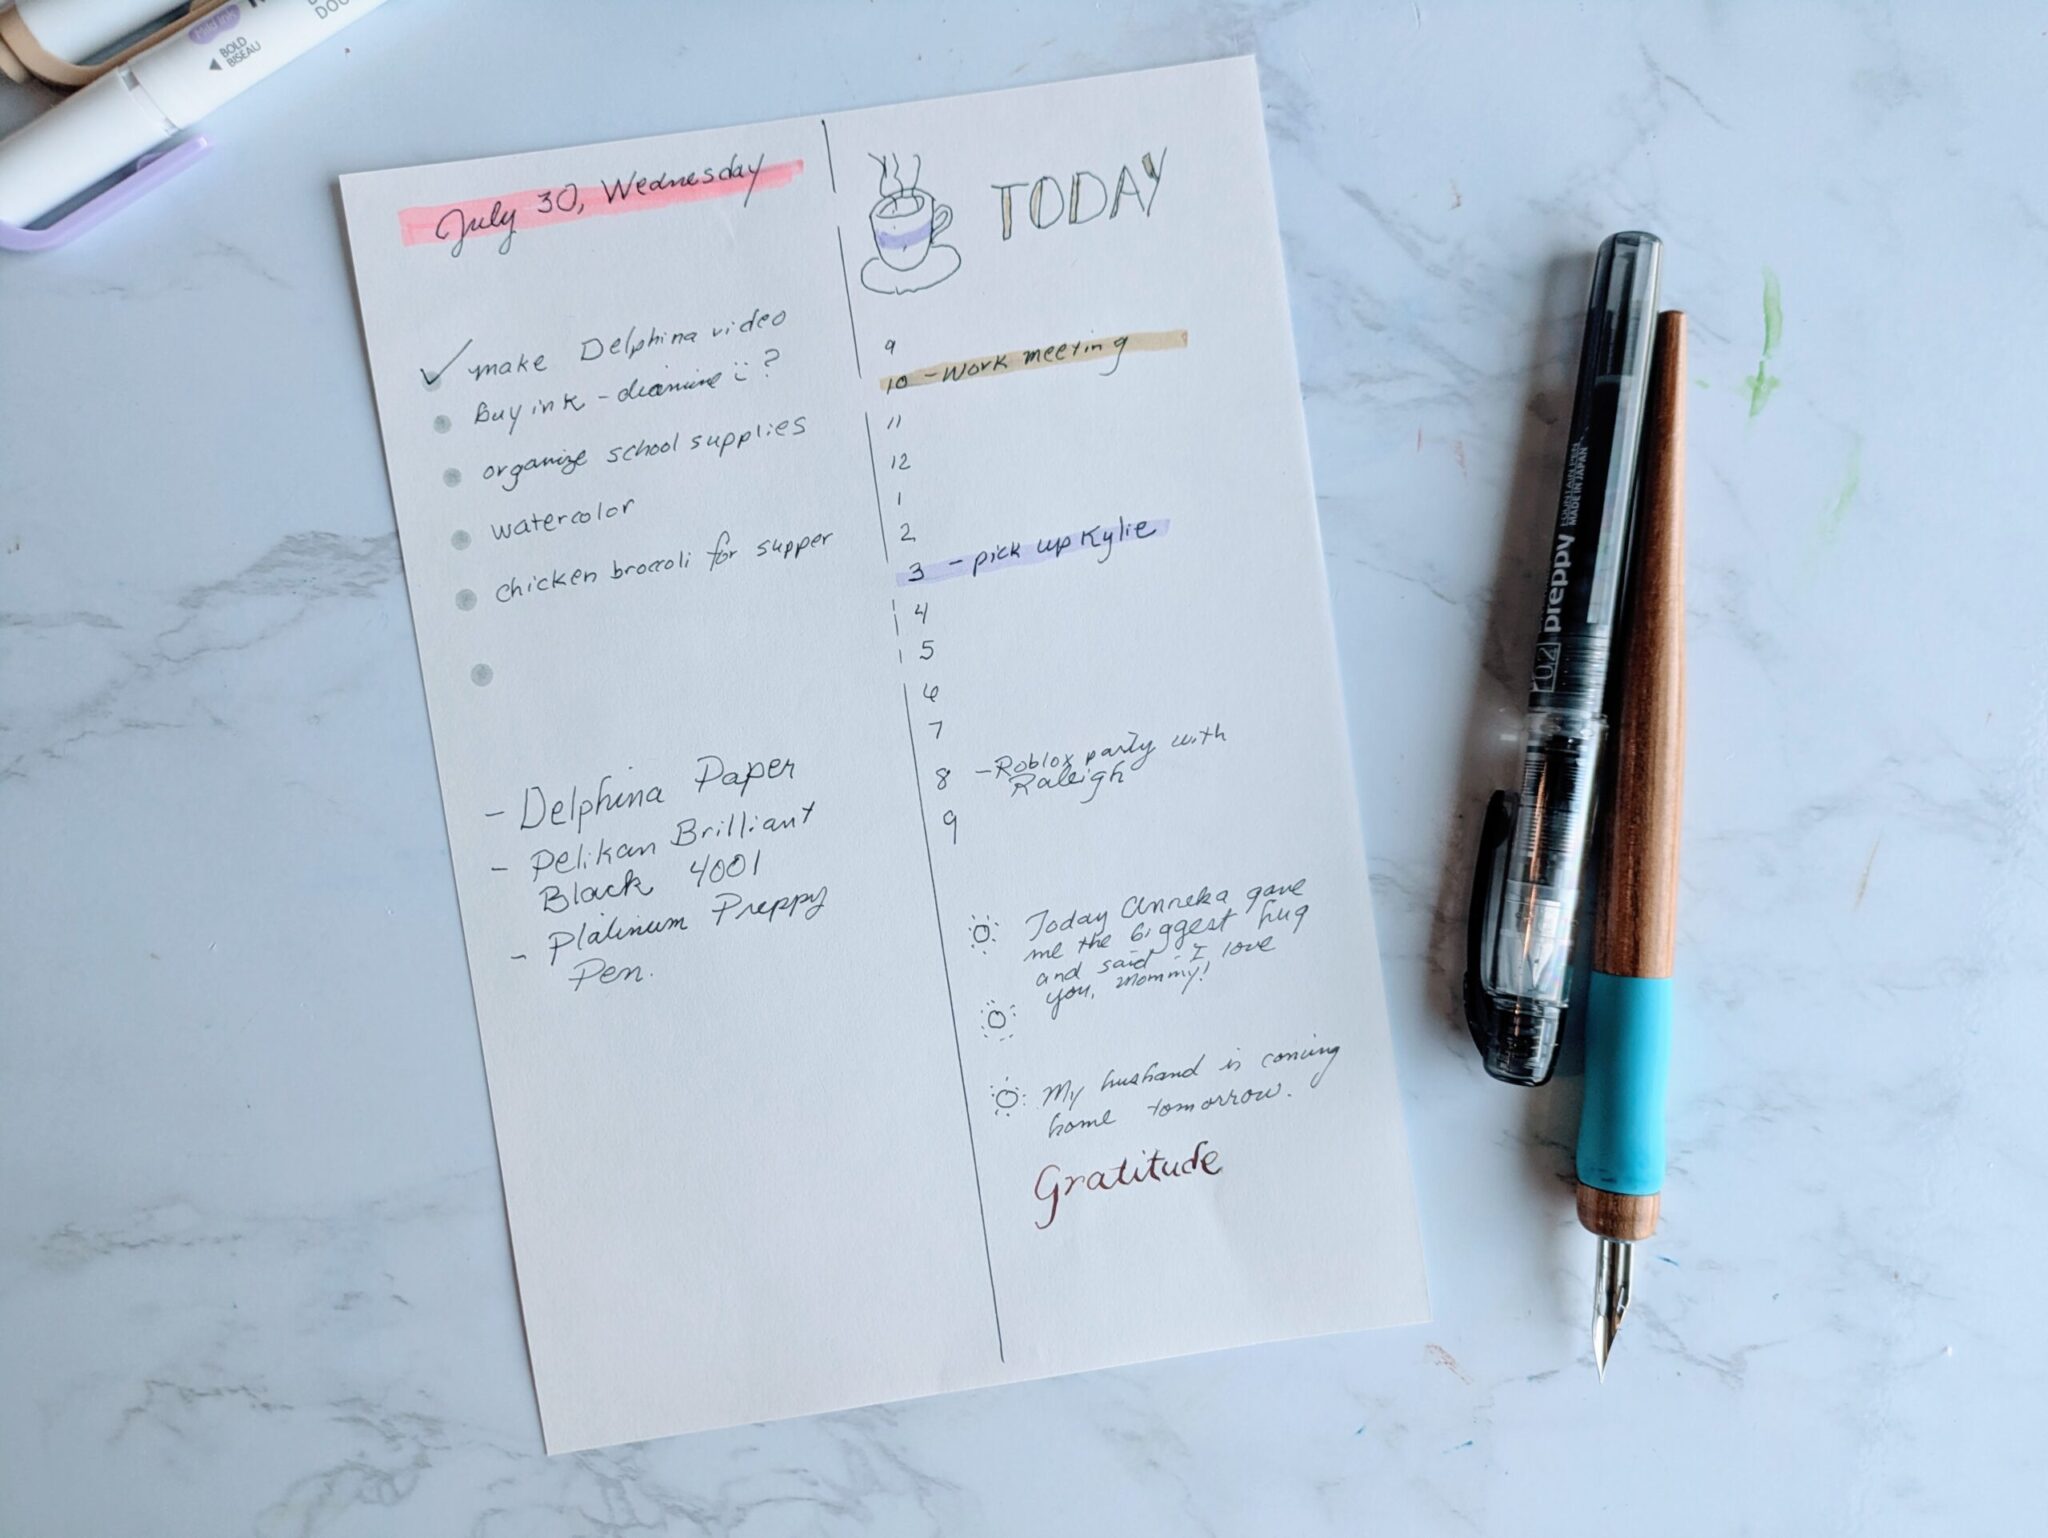 Mild ink
BOLD
BISEAU
July 30, Wednesday
make Delphina video
buy ink - diamine ?
organize school supplies
watercolor
chicken broccoli for supper
- Delphina Paper
- Pelikan Brilliant
Black 4001
- Platinum Preppy
Pen.
TODAY
9
10 - Work meeting
11
12
1
2
3 - pick up Kylie
4
5
6
7
8 - Roblox party with
Raleigh
9
Today Anneka gave
me the biggest hug
and said - I love
you, mommy!
My husband is coming
home tomorrow.
Gratitude
02 preppy FOUNTAIN PEN
MADE IN JAPAN